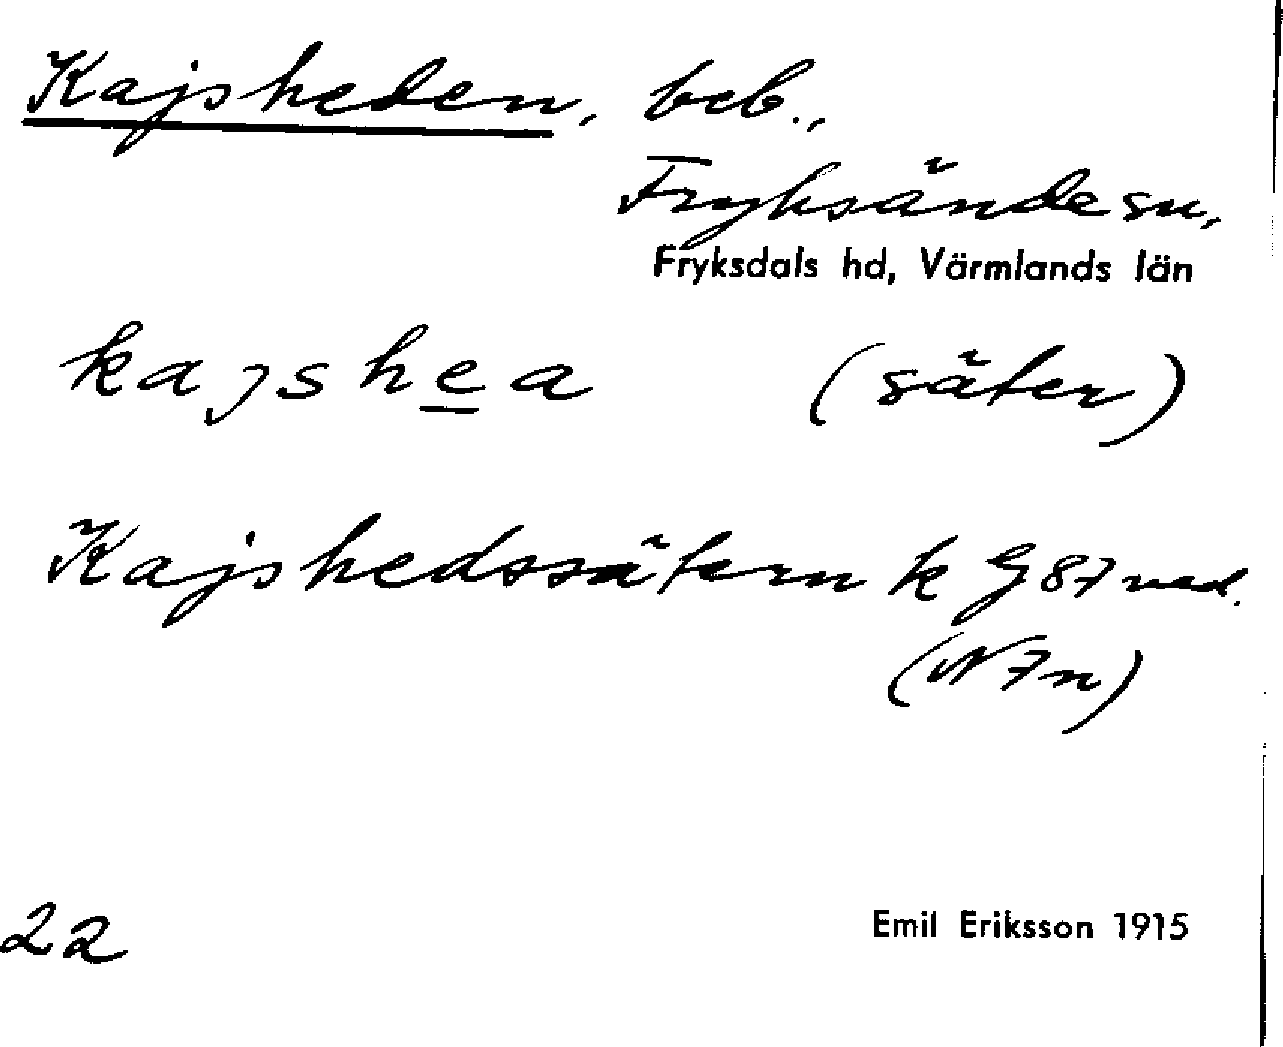 Kajsheden, beb.,
Fryksände sn,
Fryksdals hd, Värmlands län
kajshea (säter)
Kajshedssätern k G87 ned.
(N7n)
22
Emil Eriksson 1915